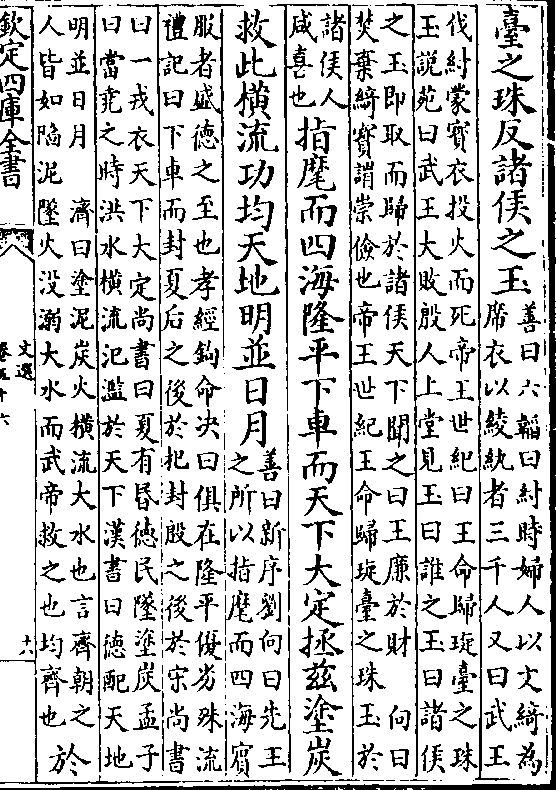 臺之珠反諸侯之玉
善曰六韜曰紂時婦人以文綺為
席衣以綾紈者三千人又曰武王
伐紂蒙寳衣投火而死帝王世紀曰王命歸琁臺之珠
玉說苑曰武王大敗殷人上堂見玉曰誰之玉曰諸侯
之玉即取而歸於諸侯天下聞之曰王廉於財 向曰
焚棄綺寳謂崇儉也帝王世紀王命歸琁臺之珠玉於
諸侯人
咸喜也
指麾而四海隆平下車而天下大定拯兹塗炭
救此橫流功均天地明並日月
善曰新序劉向曰先王
之所以指麾而四海賓
服者盛德之至也孝經鉤命决曰俱在隆平優劣殊流
禮記曰下車而封夏后之後於杞封殷之後於宋尚書
曰一戎衣天下大定尚書曰夏有昏德民墜塗炭孟子
曰當堯之時洪水橫流氾濫於天下漢書曰德配天地
明並日月 濟曰塗泥炭火橫流大水也言齊朝之
人皆如陷泥墜火没溺大水而武帝救之也均齊也
於
欽定四庫全書
文選
卷五十六
十六